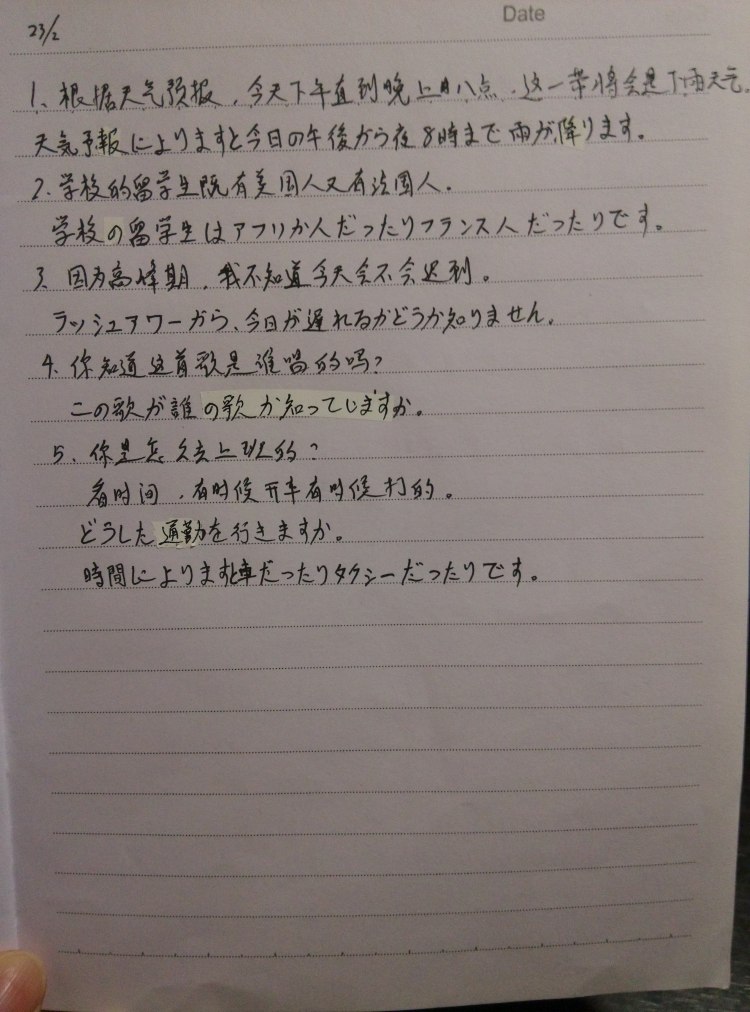 Date
23/2
1、根据天气预报，今天下午直到晚上八点，这一带将会是下雨天气.
天気予報によりますと今日の午後から夜8時まで雨が降ります。
2.学校的留学生既有美国人又有法国人.
学校の留学生はアフリカ人だったりフランス人だったりです。
3、因为高峰期，我不知道今天会不会迟到。
ラッシュアワーから、今日が遅れるかどうか知りません。
4、你知道这首歌是谁唱的吗?
この歌が誰の歌か知っていますか。
5、你是怎么去上班的?
看时间，有时候开车有时候打的。
どうした通勤を行きますか。
時間によりますと車だったりタクシーだったりです。